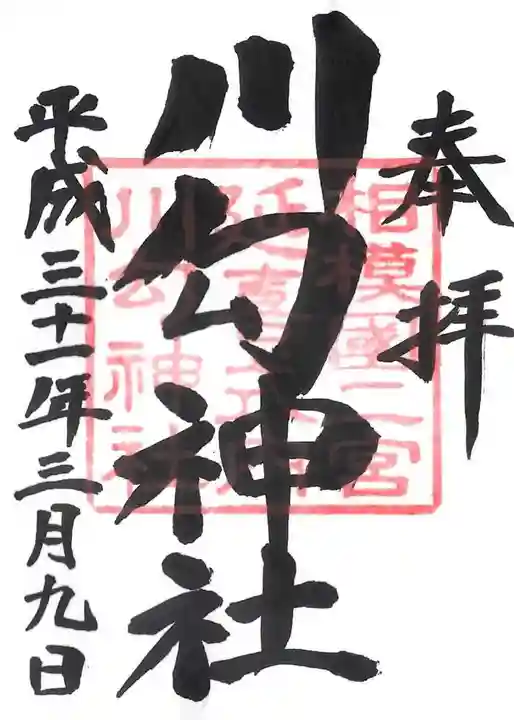 奉拝
川勾神社
平成三十一年三月九日
相模國二宮
川勾神社